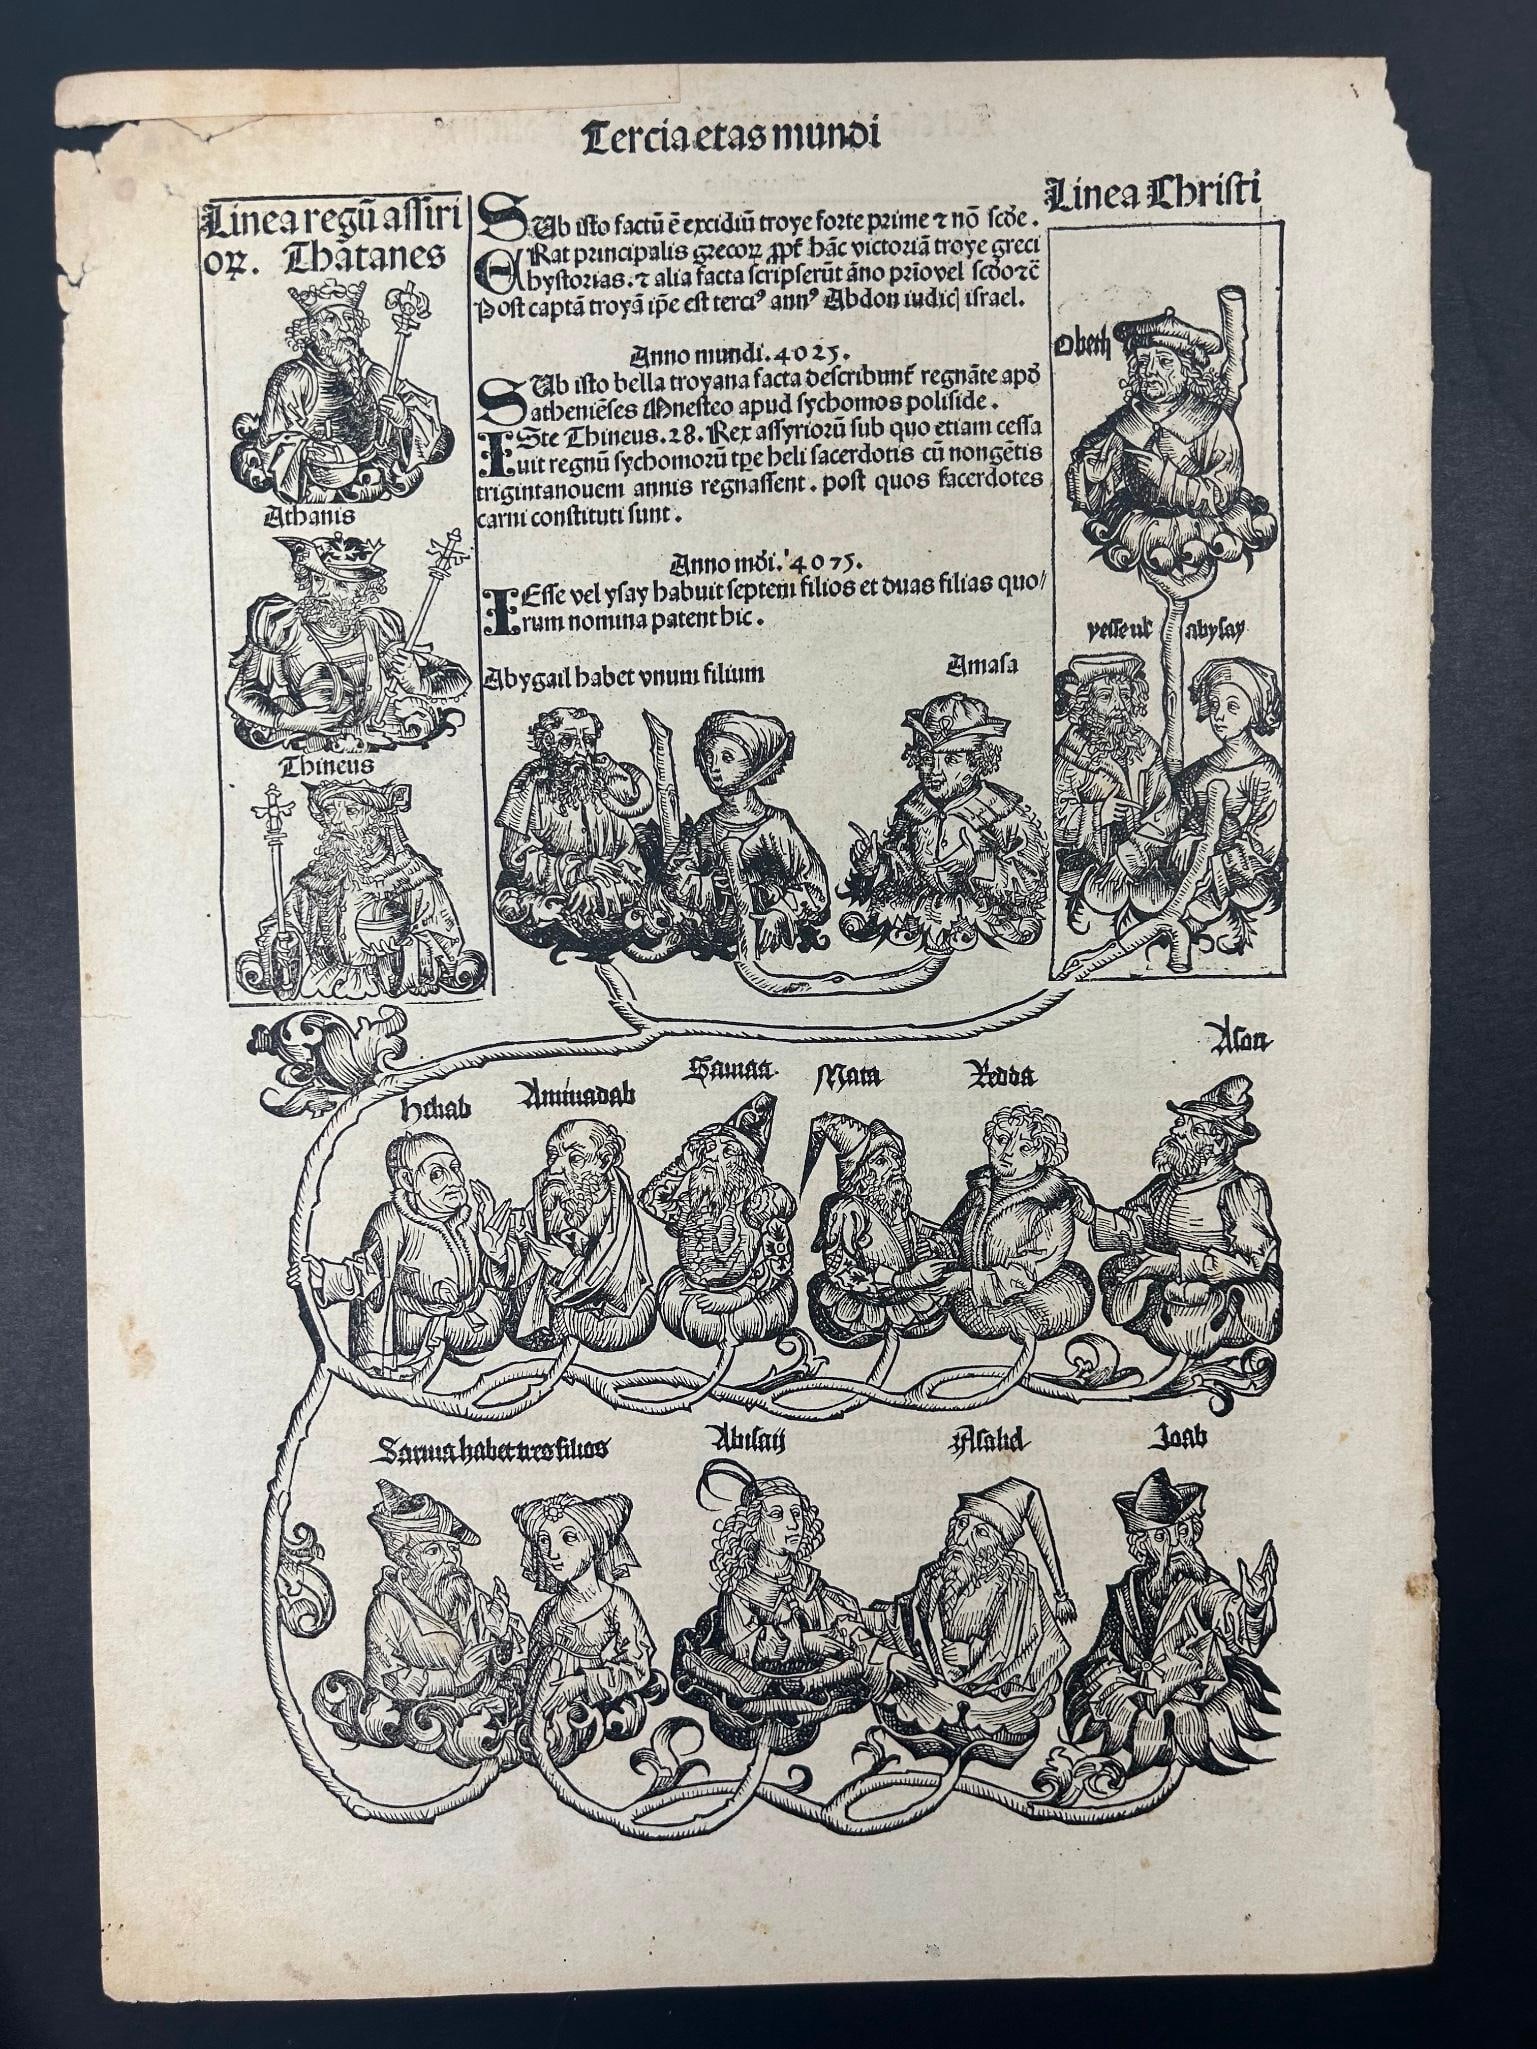 Tercia etas mundi
Linea regū assiri
oꝝ. Thatanes
Athanis
Thineus
SUb isto factū ē excidiū troye forte prime ⁊ nō scd̄e.
ERat principalis grecoꝝ ꝓpt̄ hāc victoriā troye greci
hystorias. ⁊ alia facta scripserūt āno prīo vel scd̄o ⁊c̄
Post captā troyā ip̄e est terciꝰ annꝰ Abdon iudicꝭ israel.
Anno mundi. 4025.
SUb isto bella troyana facta describunt̄ regnāte apd̄
atheniēses Mnesteo apud sychomos poliside.
ISte Thineus. 28. Rex assyriorū sub quo etiam cessa
uit regnū sychomorū tꝑe heli sacerdotis cū nongētis
trigintanouem annis regnassent. post quos sacerdotes
carni constituti sunt.
Anno mūdi. 4075.
IEsse vel ysay habuit septem filios et duas filias quo⸗
rum nomina patent hic.
Abygail habet vnum filium
Amasa
Linea Christi
Obeth
yesse ul̄ abysay
Heliab
Aminadab
Samaa
Mata
Redda
Ason
Saruia habet tres filios
Abisaij
Asahel
Joab